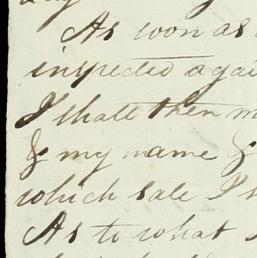 As soon as
inspected agai
I shall then m
& my name &
which sale I s
As to what